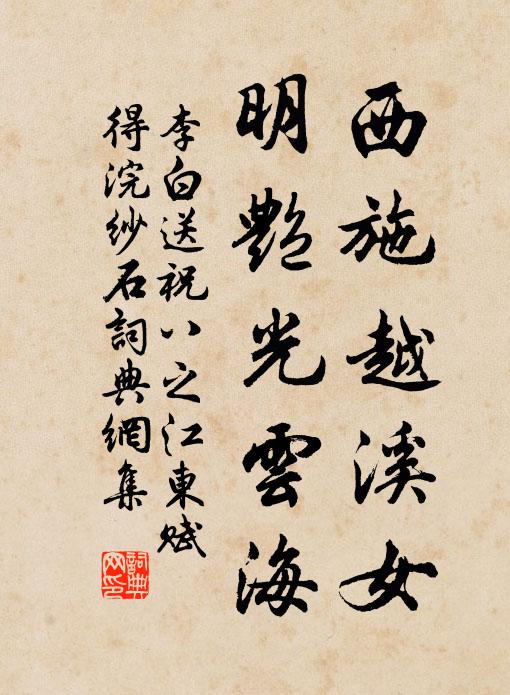 西施越溪女
明艷光雲海
李白送祝八之江東賦
得浣紗石詞典網集
詞典
網印